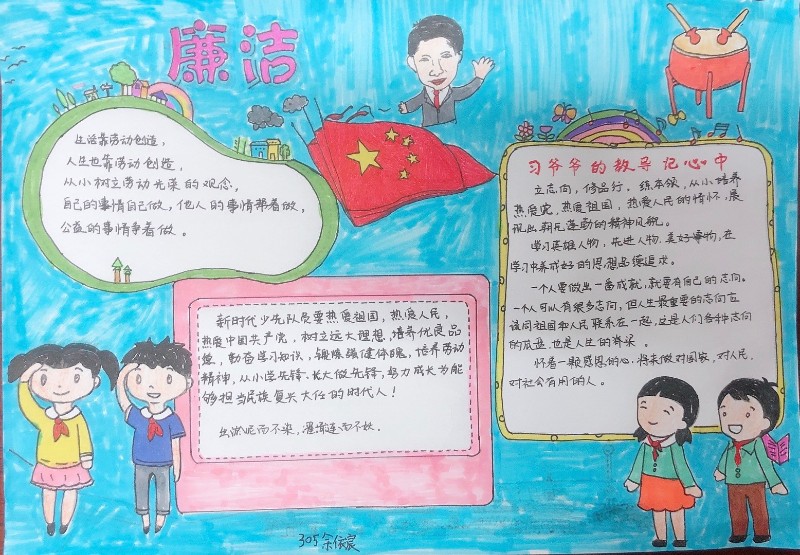 廉洁
生活靠劳动创造，
人生也靠劳动创造，
从小树立劳动光荣的观念，
自己的事情自己做，他人的事情帮着做，
公益的事情争着做。
新时代少先队员要热爱祖国，热爱人民，
热爱中国共产党，树立远大理想，培养优良品
德，勤奋学习知识，锻炼强健体魄，培养劳动
精神，从小学先锋，长大做先锋，努力成长为能
够担当民族复兴大任的时代人！
出淤泥而不染，濯清涟而不妖。
习爷爷的教导记心中
立志向，修品行，练本领，从小培养
热爱党，热爱祖国，热爱人民的情怀，展
现出朝元蓬勃的精神风貌。
学习英雄人物，先进人物，美好事物，在
学习中养成好的思想品德追求。
一个人要做出一番成就，就要有自己的志向。
一个人可以有很多志向，但人生最重要的志向应
该同祖国和人民联系在一起，这是人们各种志向
的底盘，也是人生的脊梁。
怀着一颗感恩的心，将来做对国家，对人民，
对社会有用的人。
305 余